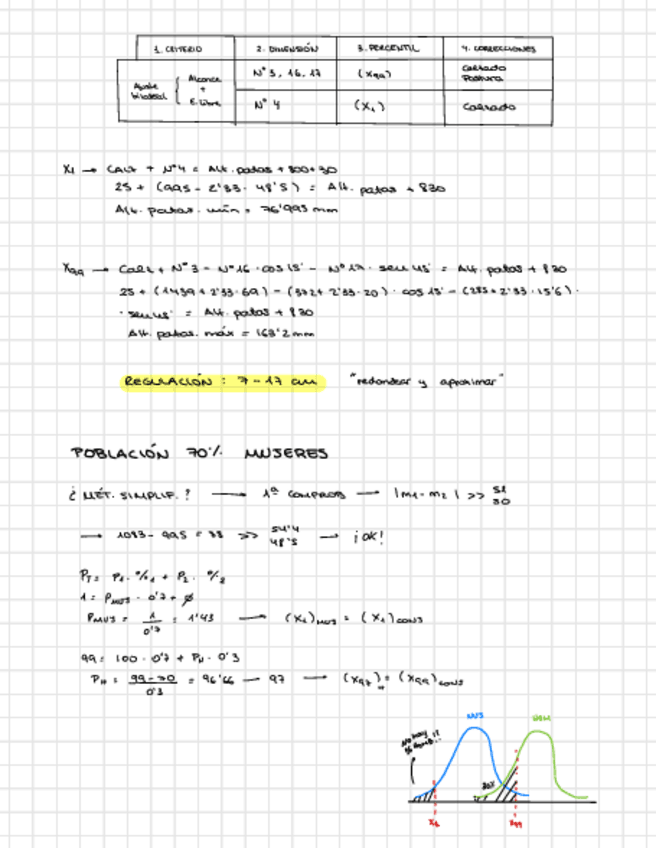 1. CRITERIO 2. DIMENSIÓN 3. PERCENTIL 4. CORRECCIONES
Ajuste bilateral { Alcance + E. libre
Nº 3, 16, 17 (X99) Calzado Postura
Nº 4 (X1) Calzado
X1 → CALZ + Nº4 = Alt. patas + 800+30
25 + (995 - 2'33 · 48'5) = Alt. patas + 830
Alt. patas. mín = 76'995 mm
X99 → CALZ + Nº3 - Nº16 · cos 15 - Nº17 · sen 45 = Alt. patas + 830
25 + (1439 + 2'33 · 69) - (372 + 2'33 · 20) · cos 15 - (285 + 2'33 · 15'6) ·
· sen 45 = Alt. patas + 830
Alt. patas. máx = 163'2 mm
REGULACIÓN : 7 - 17 cm "redondear y aproximar"
POBLACIÓN 70% MUJERES
¿ MÉT. SIMPLIF. ? → 1ª COMPROB → |m1 - m2| >> S1 S0
→ 1083 - 995 = 88 >> 54'4 48'5 → ¡OK!
PT = P1 · %1 + P2 · %2
1 = PMUJ · 0'7 + ø
PMUJ = 1 / 0'7 = 1'43 → (X1)MUJ = (X1)CONJ
99 = 100 · 0'7 + PH · 0'3
PH = 99-70 / 0'3 = 96'66 → 97 → (X97)H = (X99)CONJ
MUJ HOM
No hay
X1 X99